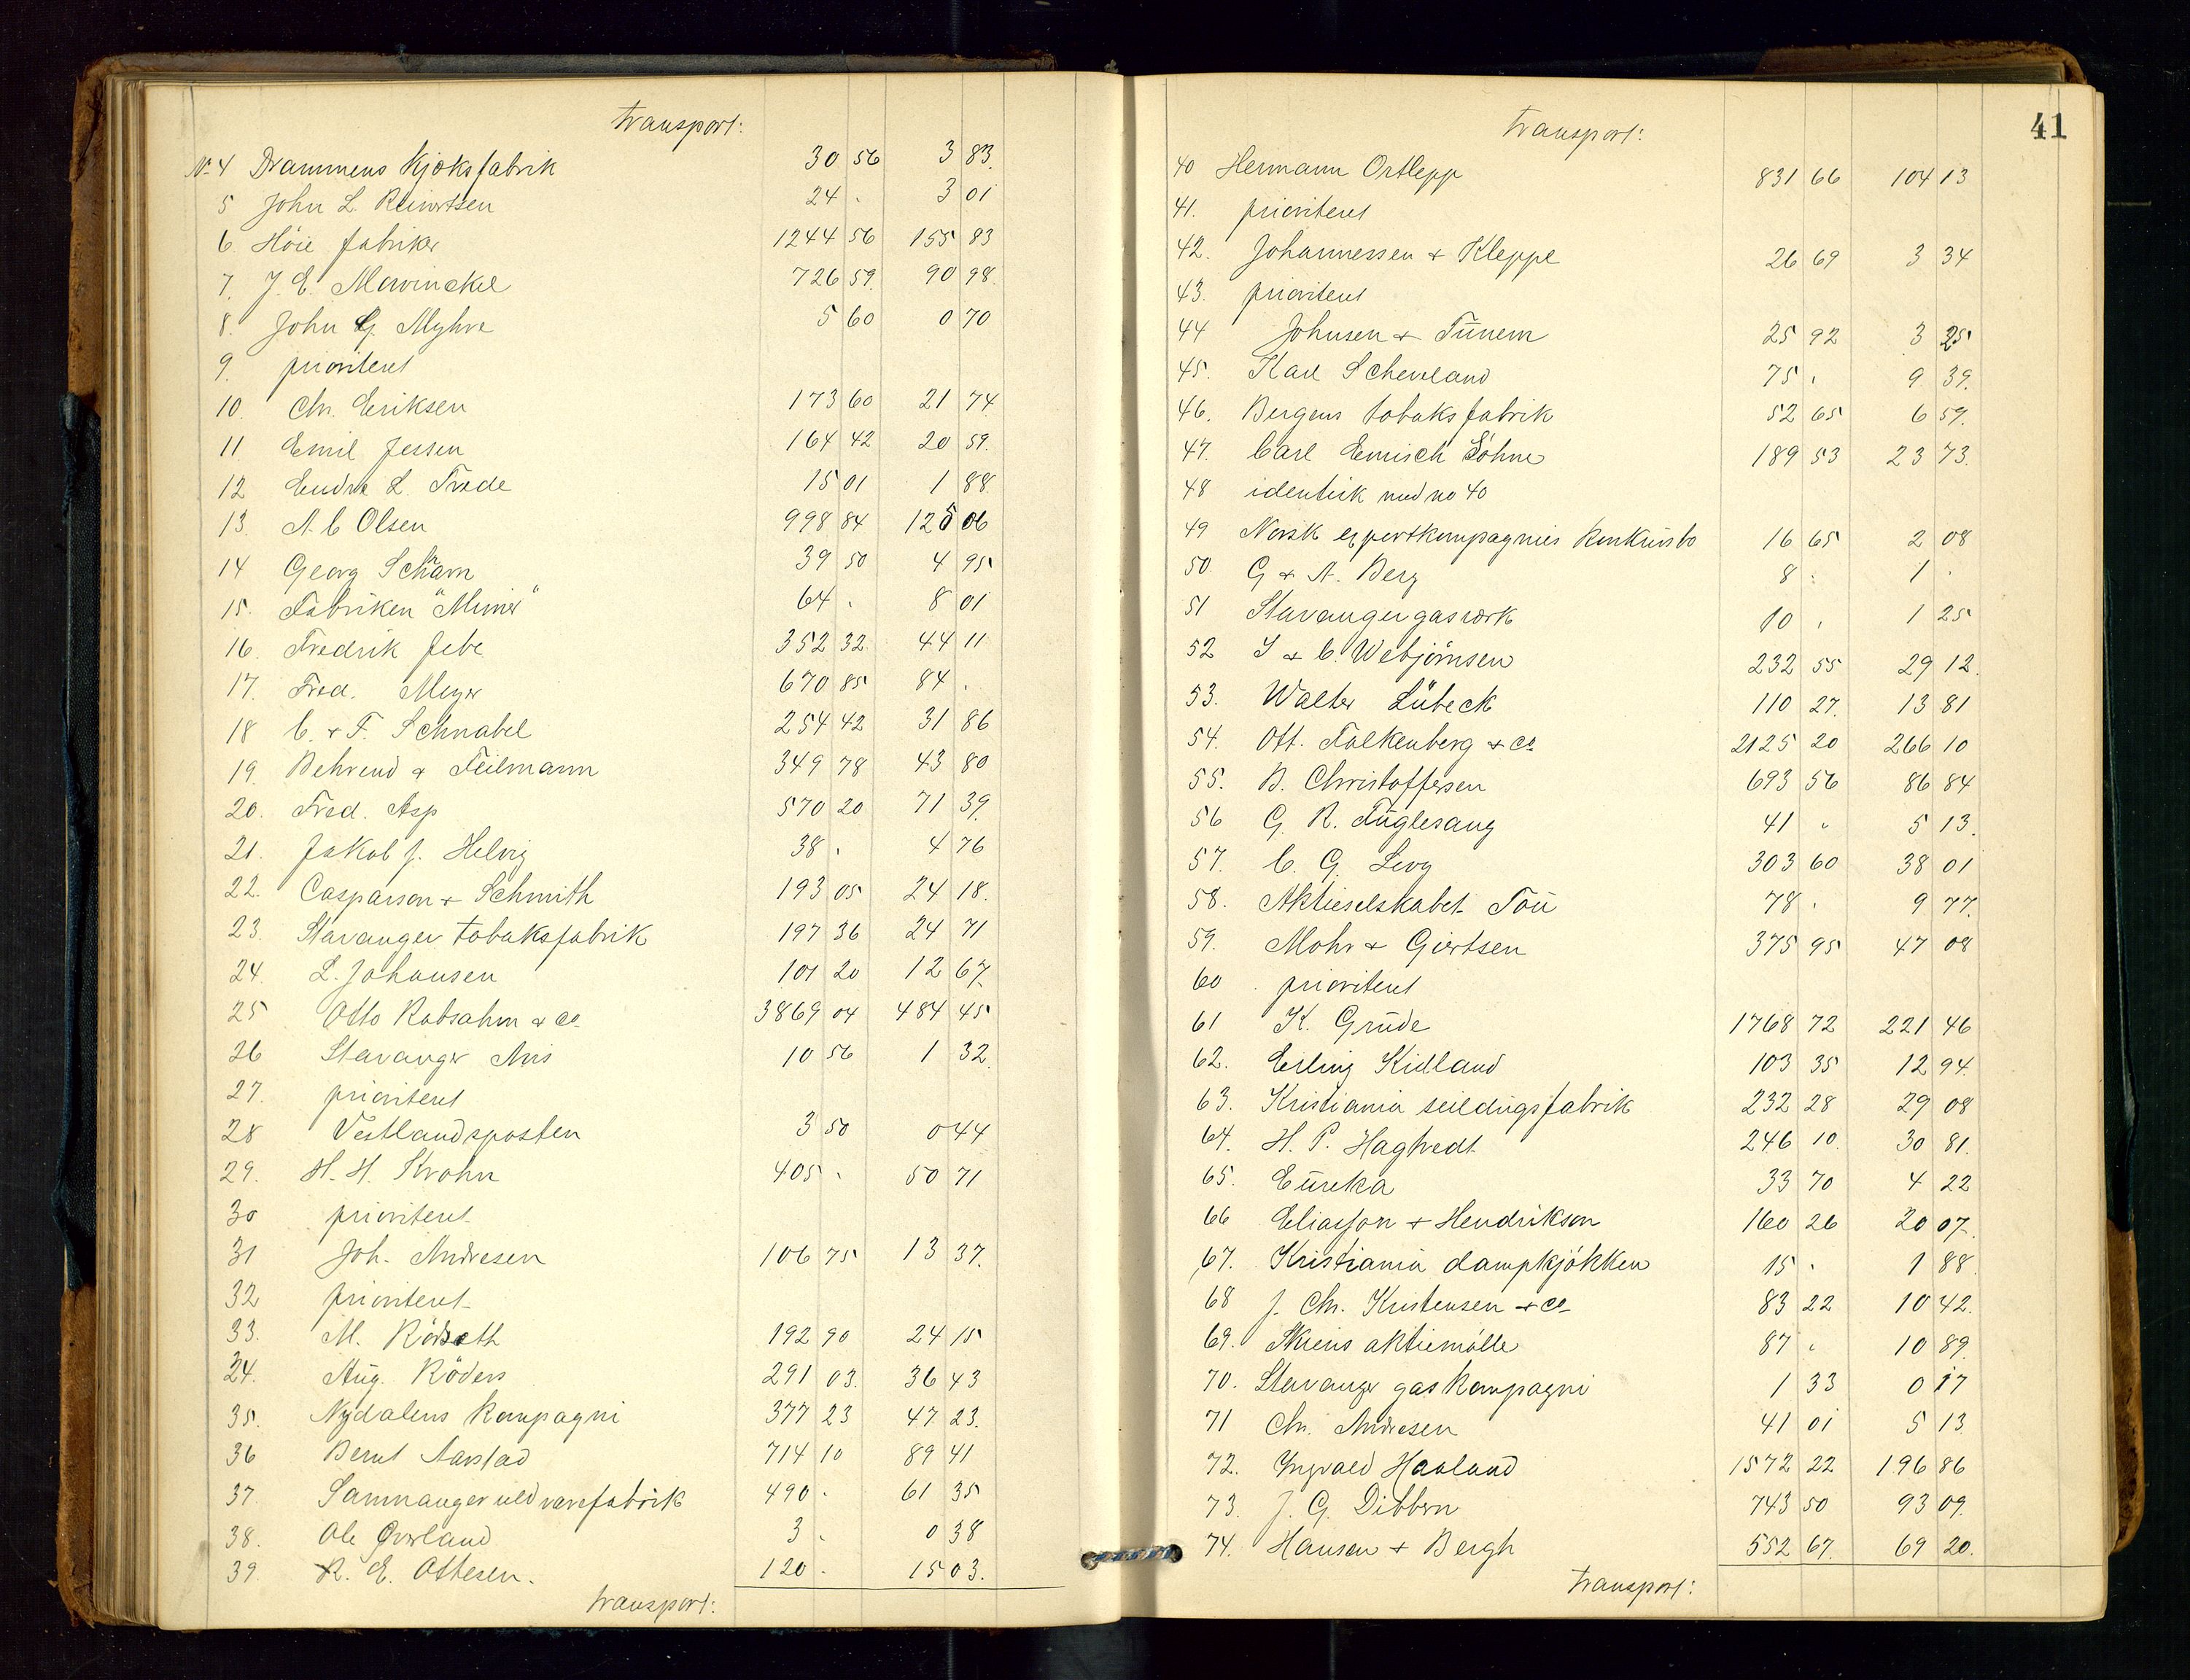 transport:
No 4 Drammens Kjøksfabrik 30 56 3 83.
5 John L. Reinertsen 24 . 3 01
6. Höie fabriker 1244 56 155 83
7. J. E. Mowinckel 726 59. 90 98.
8. John G. Myhre 5 60 0 70
9. prioritert
10. Chr. Eriksen 173 60 21 74
11 Emil Jessen 164 42 20 59.
12 Endre L. Trede 15 01 1 88
13. A. C Olsen 998 84 125 06
14 Georg Scharn 39 50 4 95
15. Fabriken "Mimer" 64 . 8 01
16. Fredrik Jebe 352 32. 44 11
17. Fred. Meyer 670 85 84 .
18 C. & F. Schnabel 254 42 31 86
19. Behrend & Feilmann 349 78 43 80
20. Fred. Asp 570 20 71 39.
21. Jakob J. Helvig 38 . 4 76
22. Casparson & Schmith 193 05 24 18.
23. Stavanger tobaksfabrik 197 36 24 71
24. L. Johansen 101 20 12 67.
25 Otto Robsahm & Co. 3869 04 484 45
26 Stavanger Avis 10 56 1 32.
27. prioritert
28 Vestlandsposten 3 50 0 44
29. H. H. Krohn 405 . 50 71
30 prioritert
31 Joh. Andresen 106 75 13 37.
32 prioritert
33. M. Rödseth 192 90 24 15
34. Aug. Röders 291 03. 36 43
35. Nydalens kompagni 377 23 47 23.
36 Bernt Aarstad 714 10 89 41
37. Samnanger uldvarefabrik 490 . 61 35
38. Ole Qverland 3 . 0 38
39. R. E. Ottesen. 120 . 15 03.
transport:
41
transport:
40 Hermann Ortlepp 831 66 104 13
41. prioritert
42. Johannessen & Kleppe 26 69 3 34
43. prioritert
44 Johnsen & Tunem 25 92 3 25
45. Karl Scheveland 75 . 9 39.
46. Bergens tobaksfabrik 52 65 6 59.
47. Carl Emisch Söhne 189 53 23 73.
48 identisk med no 40
49 Norsk exportkompagnies konkursbo 16 65 2 08
50. G & A. Berg 8 . 1 .
51 Stavanger gasværk 10 . 1 25
52 I & C. Webjörnsen 232 55 29 12.
53. Walter Lübeck 110 27. 13 81
54. Ott. Falkenberg & Co 2125 20 266 10
55. B. Christoffersen 693 56 86 84
56 G. R. Fuglesang 41 . 5 13.
57. C. G. Levy 303 60 38 01
58. Aktieselskabet Tou 78 . 9 77.
59. Mohr & Giertsen 375 95 47 08
60 prioritert
61 K. Grude 1768 72 221 46
62. Erling Kidland 103 35 12 94.
63. Kristiania seildugsfabrik 232 28 29 08
64. H. P. Hagtvedt 246 10. 30 81.
65. Eureka 33 70 4 22
66 Eliasson & Hendrikson 160 26 20 07.
67. Kristiania dampkjökken 15 . 1 88.
68 J. Chr. Kristensen & Co 83 22 10 42.
69. Skiens aktiemölle 87 . 10 89.
70. Stavanger gaskompagni 1 33 0 17
71 Chr. Andresen 41 01 5 13.
72. Yngvald Haaland 1572 22 196 86
73. J. G. Dibbern 743 50 93 09.
74. Hansen & Bergh 552 67. 69 20.
transport: